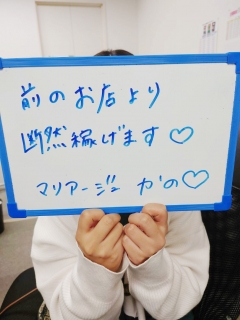 前のお店より
断然稼げます♡
マリアージュ かの♡